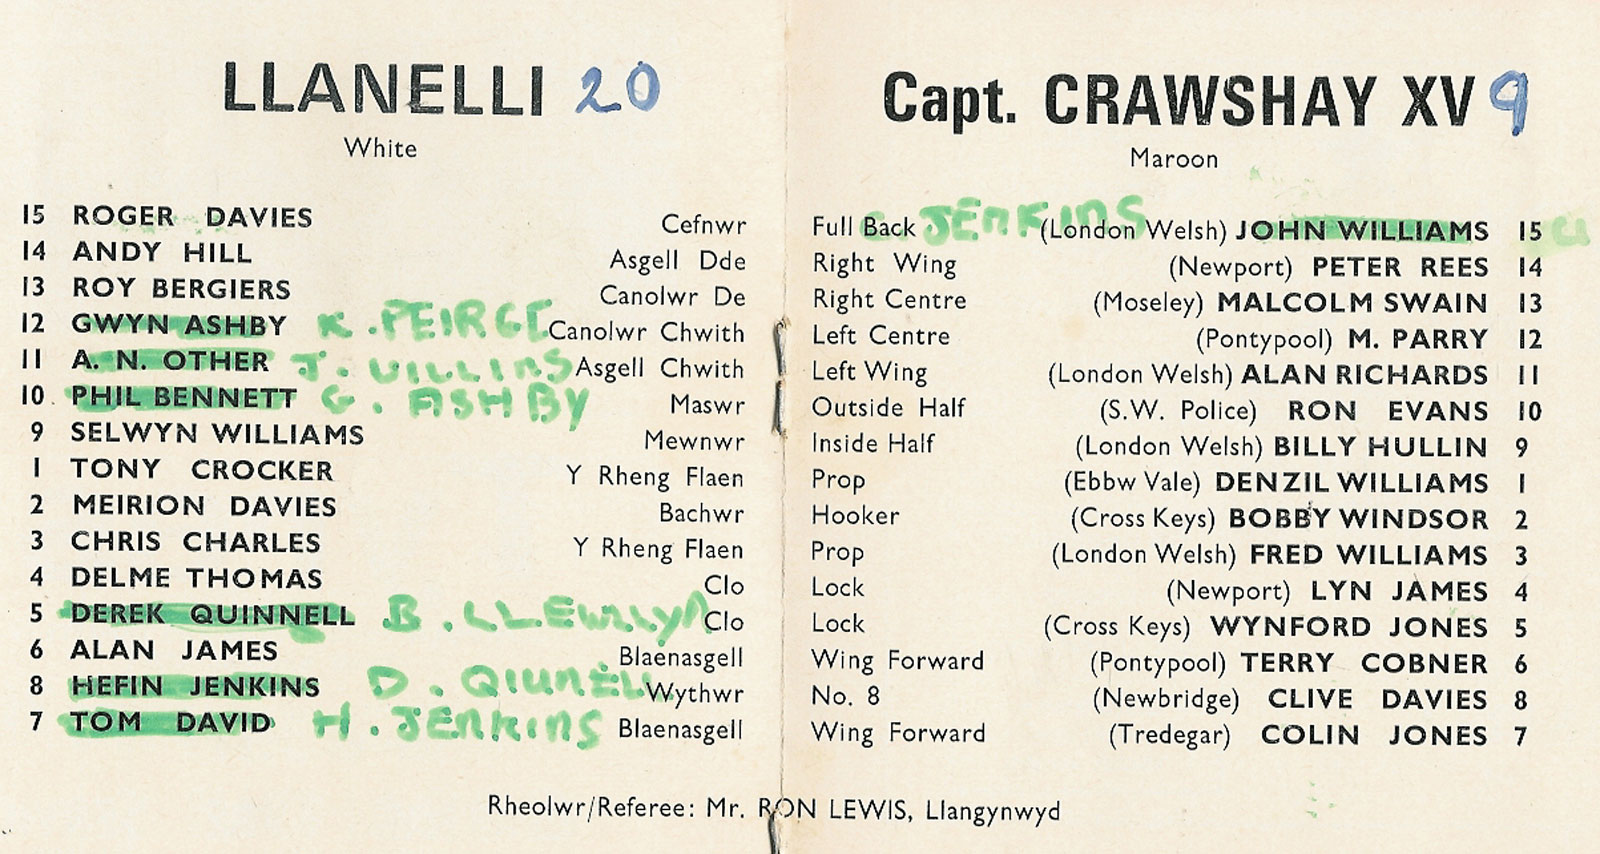 LLANELLI 20
White
15 ROGER DAVIES Cefnwr
14 ANDY HILL Asgell Dde
13 ROY BERGIERS Canolwr De
12 GWYN ASHBY K. PEIRCE Canolwr Chwith
11 A. N. OTHER J. Asgell Chwith
10 PHIL BENNETT G. ASHBY Maswr
9 SELWYN WILLIAMS Mewnwr
1 TONY CROCKER Y Rheng Flaen
2 MEIRION DAVIES Bachwr
3 CHRIS CHARLES Y Rheng Flaen
4 DELME THOMAS Clo
5 DEREK QUINNELL B. Clo
6 ALAN JAMES Blaenasgell
8 HEFIN JENKINS D. Wythwr
7 TOM DAVID H. JENKINS Blaenasgell
Capt. CRAWSHAY XV 9
Maroon
JENKINS
Full Back (London Welsh) JOHN WILLIAMS 15
Right Wing (Newport) PETER REES 14
Right Centre (Moseley) MALCOLM SWAIN 13
Left Centre (Pontypool) M. PARRY 12
Left Wing (London Welsh) ALAN RICHARDS 11
Outside Half (S.W. Police) RON EVANS 10
Inside Half (London Welsh) BILLY HULLIN 9
Prop (Ebbw Vale) DENZIL WILLIAMS 1
Hooker (Cross Keys) BOBBY WINDSOR 2
Prop (London Welsh) FRED WILLIAMS 3
Lock (Newport) LYN JAMES 4
Lock (Cross Keys) WYNFORD JONES 5
Wing Forward (Pontypool) TERRY COBNER 6
No. 8 (Newbridge) CLIVE DAVIES 8
Wing Forward (Tredegar) COLIN JONES 7
Rheolwr/Referee: Mr. RON LEWIS, Llangynwyd